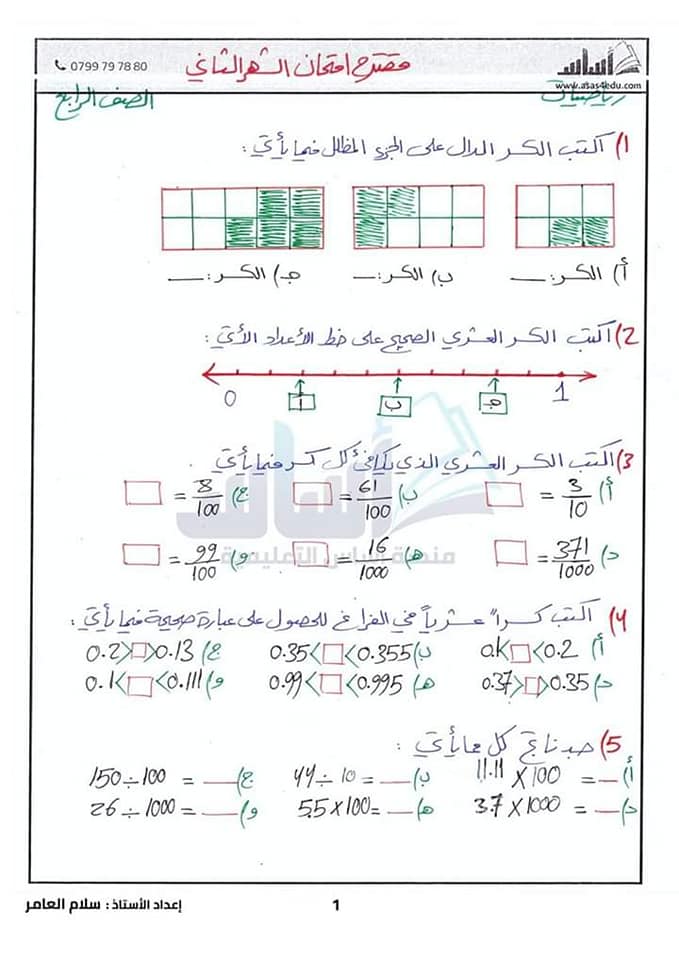 أساس
www.asas4edu.com
مقترح امتحان الشهر الثاني
0799 79 78 80
رياضيات
الصف الرابع
1) اكتب الكسر الدال على الجزء المظلل فيما يأتي :
أ) الكسر: __ ب) الكسر: __ جـ) الكسر: __
2) اكتب الكسر العشري الصحيح على خط الأعداد الآتي :
0 1
أ ب جـ
3) اكتب الكسر العشري الذي يكافئ كل كسر فيما يأتي .
أ) 3/10 = □ ب) 61/100 = □ ج) 8/100 = □
د) 371/1000 = □ هـ) 16/1000 = □ و) 99/100 = □
أساس
منصة أساس التعليمية
4) اكتب كسراً عشرياً في الفراغ للحصول على عبارة صحيحة فيما يأتي :
أ) 0.1<□<0.2 ب) 0.35<□<0.355 ج) 0.2>□>0.13
د) 0.37>□>0.35 هـ) 0.99<□<0.995 و) 0.1<□<0.111
5) جد ناتج كل مما يأتي :
أ) 11.11 × 100 = __ ب) 44 ÷ 10 = __ ج) 150 ÷ 100 = __
د) 3.7 × 1000 = __ هـ) 5.5 × 100 = __ و) 26 ÷ 1000 = __
إعداد الأستاذ : سلام العامر
1